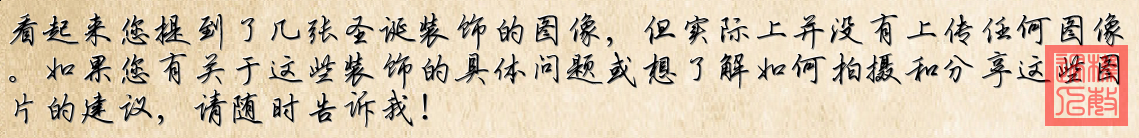 看起来您提到了几张圣诞装饰的图像，但实际上并没有上传任何图像
。如果您有关于这些装饰的具体问题或想了解如何拍摄和分享这些图
片的建议，请随时告诉我！